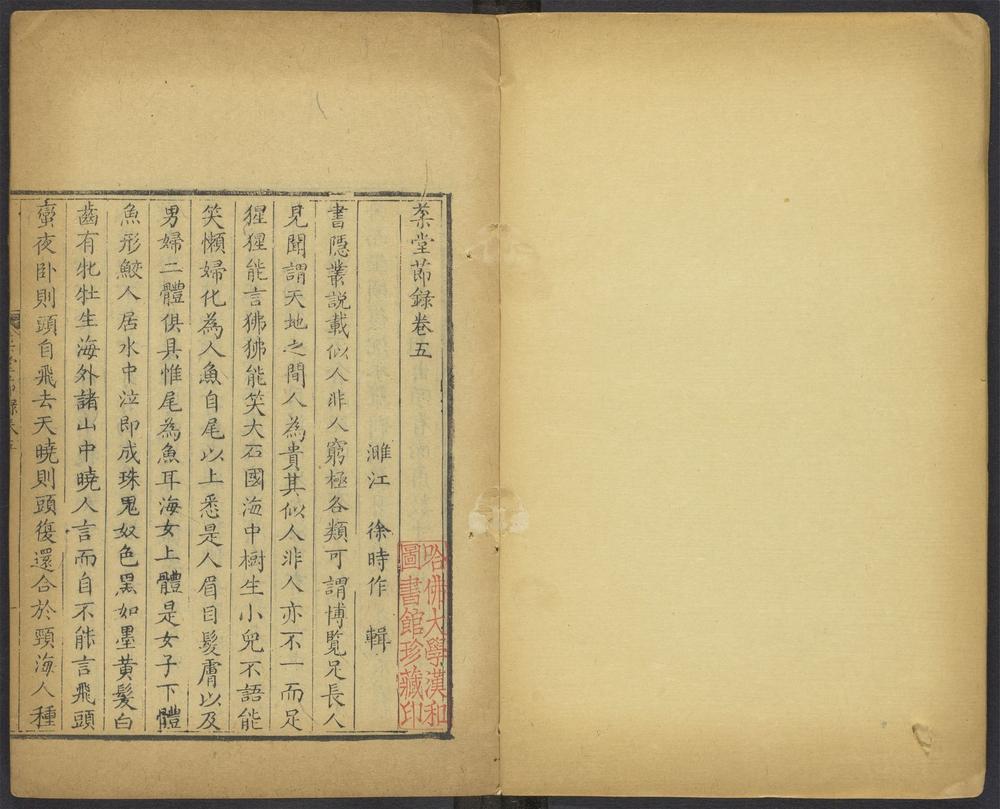 菜堂節錄卷五
濉江 徐時作 輯
書隱叢説載似人非人窮極各類可謂博覽足長人
見聞謂天地之間人為貴其似人非人亦不一而足
猩猩能言狒狒能笑大石國海中樹生小兒不語能
笑懶婦化為人魚自尾以上悉是人眉目髮膚以及
男婦二體俱具惟尾為魚耳海女上體是女子下體
魚形鮫人居水中泣即成珠鬼奴色黑如墨黄髮白
齒有牝牡生海外諸山中曉人言而自不能言飛頭
蠻夜卧則頭自飛去天曉則頭復還合於頸海人種
哈佛大學漢和
圖書館珍藏印